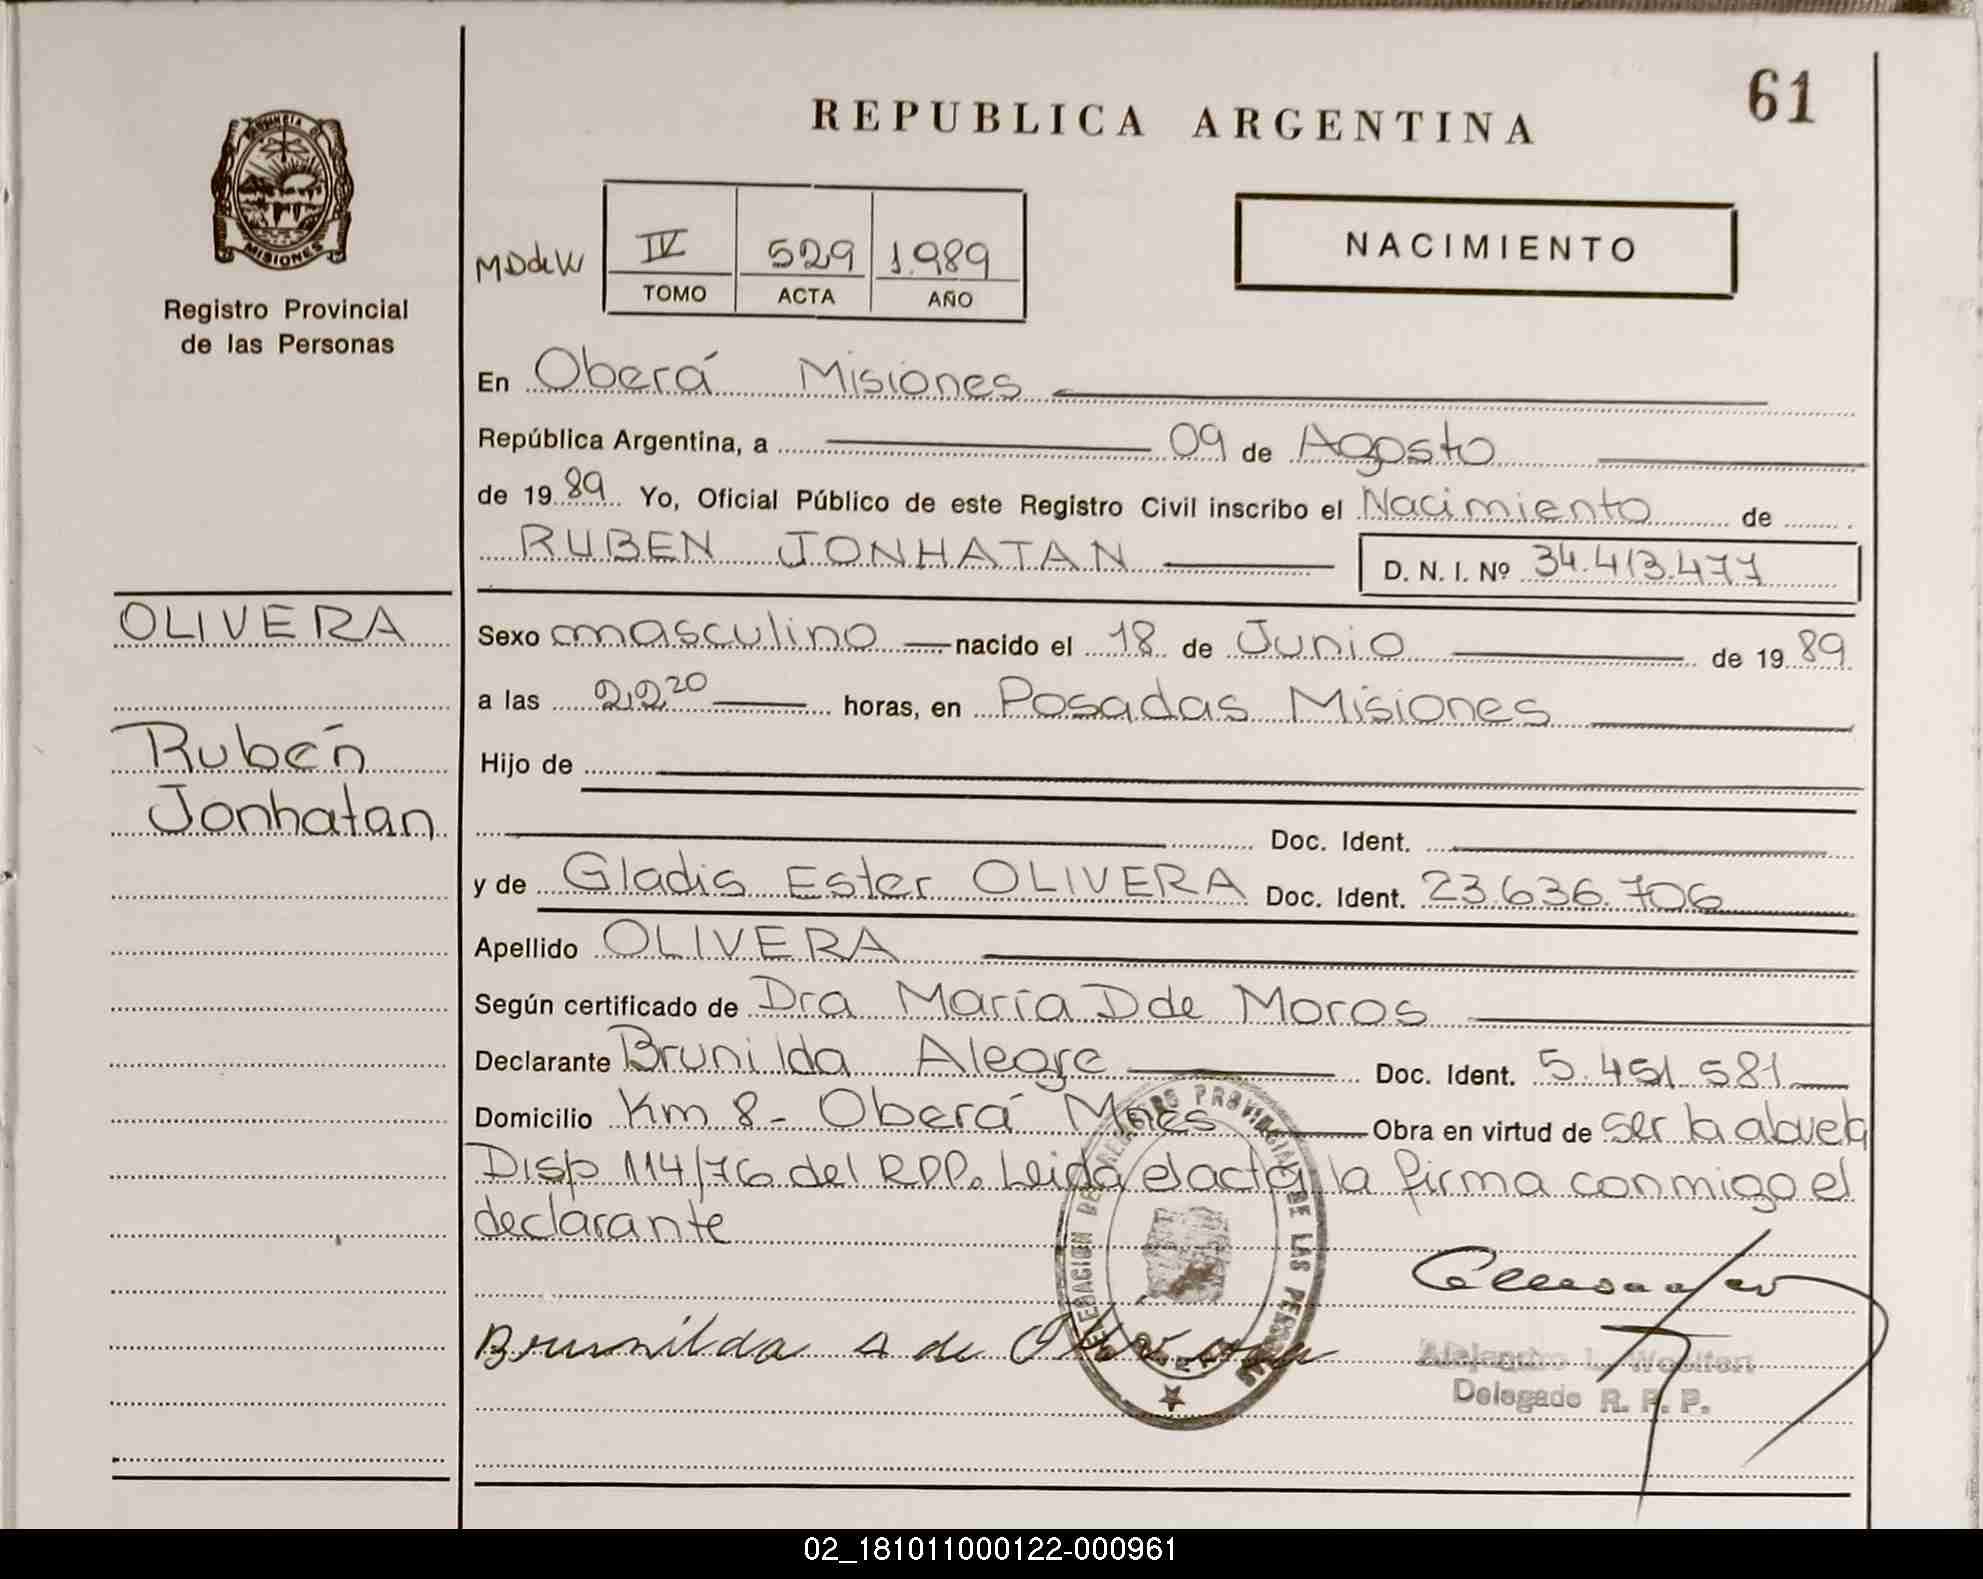 61
REPUBLICA ARGENTINA
PROVINCIA D
MISIONES
Registro Provincial
de las Personas
MDdeW
IV 529 1.989
TOMO ACTA AÑO
NACIMIENTO
En Oberá Misiones
República Argentina, a 09 de Agosto
de 19 89 Yo, Oficial Público de este Registro Civil inscribo el Nacimiento de
RUBEN JONHATAN D. N. I. Nº 34.413.477
OLIVERA
Rubén
Jonhatan
Sexo masculino nacido el 18 de Junio de 19 89
a las 22 20 horas, en Posadas Misiones
Hijo de
Doc. Ident.
y de Gladis Ester OLIVERA Doc. Ident. 23.636.706
Apellido OLIVERA
Según certificado de Dra María D de Moros
Declarante Brunilda Alegre Doc. Ident. 5.451.581
Domicilio Km 8 - Oberá Mnes Obra en virtud de ser la abuela
Disp 114/76 del RPP. Leida el acta la firma conmigo el
declarante
DELEGACION DEL REGISTRO PROVINCIAL DE LAS PERSONAS
Brunilda A de Olivera
Alejandro L.
Delegado R. P. P.
02_181011000122-000961